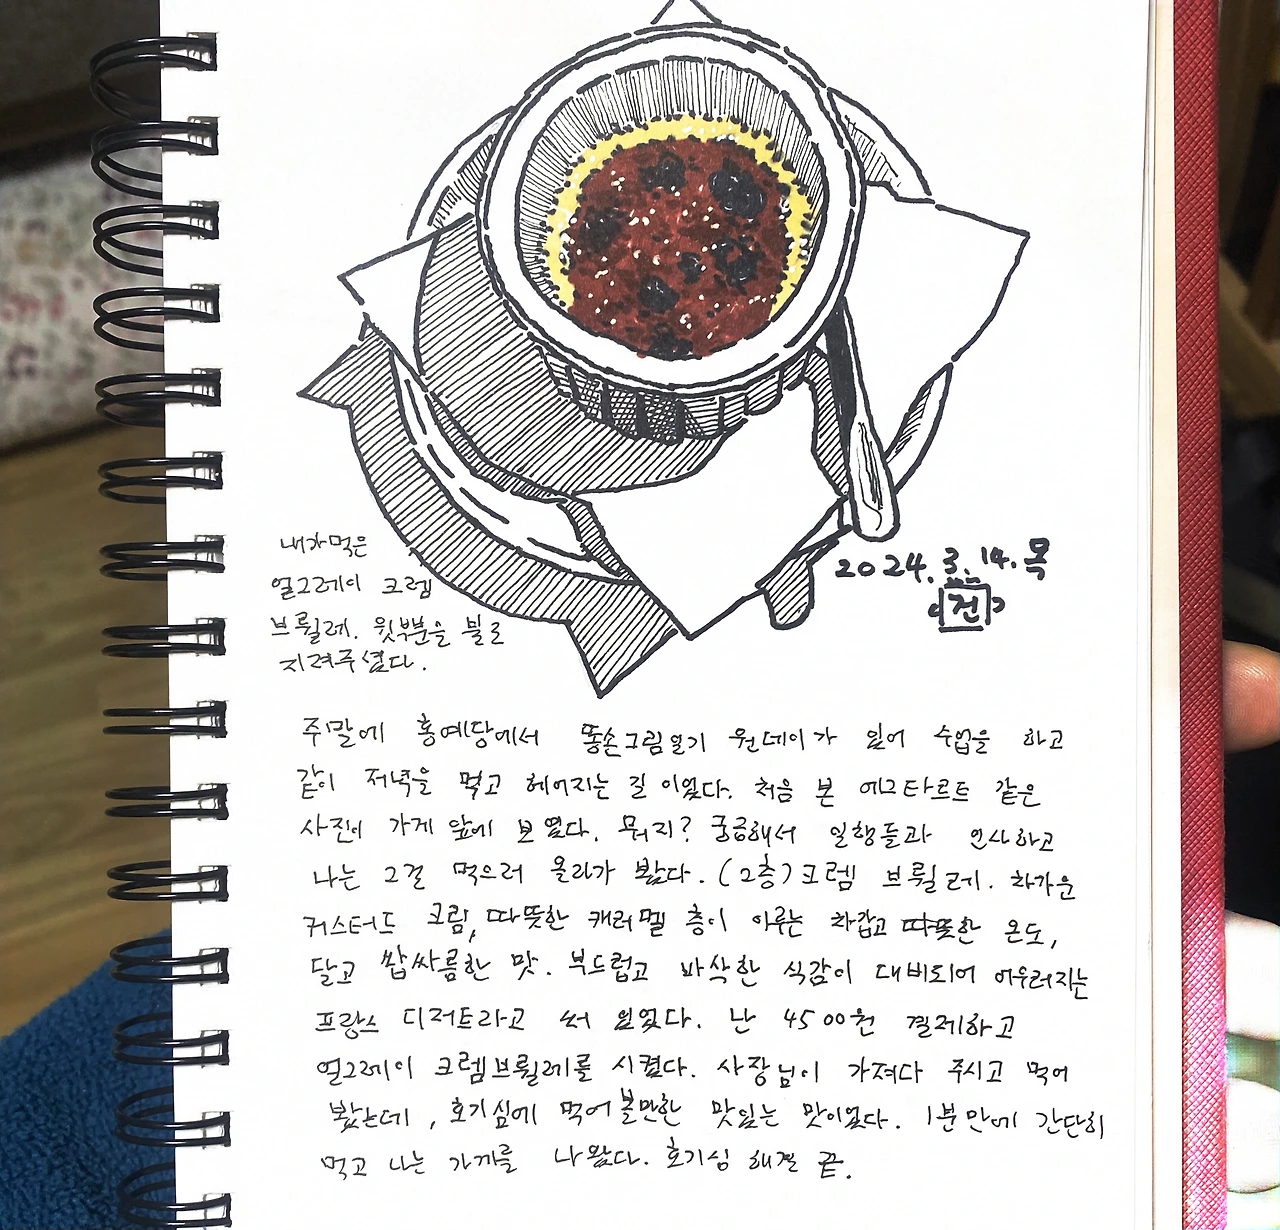 내가 먹은
얼그레이 크렘
브륄레. 윗부분을 불로
지져주셨다.
2024.3.14.목
건
주말에 홍예당에서 똥손그림일기 원데이가 있어 수업을 하고
같이 저녁을 먹고 헤어지는 길이었다. 처음 본 에그타르트 같은
사진이 가게 앞에 보였다. 뭐지? 궁금해서 일행들과 인사하고
나는 그걸 먹으러 올라가 봤다. (2층) 크렘 브륄레. 차가운
커스터드 크림, 따뜻한 캐러멜 층이 이루는 차갑고 따뜻한 온도,
달고 쌉싸름한 맛. 부드럽고 바삭한 식감이 대비되어 어우러지는
프랑스 디저트라고 써 있었다. 난 4500원 결제하고
얼그레이 크렘브륄레를 시켰다. 사장님이 가져다 주시고 먹어
봤는데, 호기심에 먹어볼만한 맛있는 맛이었다. 1분만에 간단히
먹고 나는 가게를 나왔다. 호기심 해결 끝.